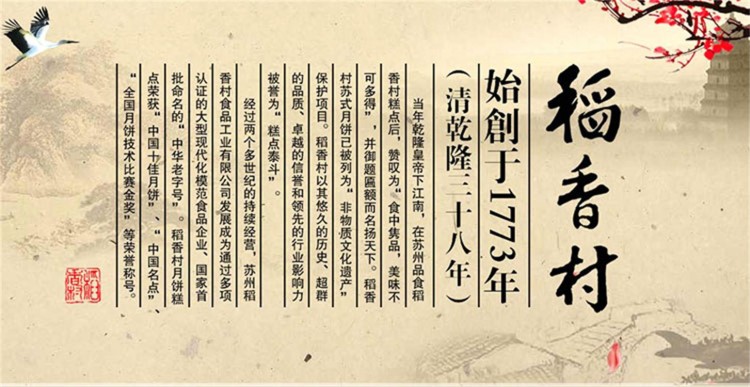 稻香村
始創于1773年
（清乾隆三十八年）
当年乾隆皇帝下江南，在苏州品食稻
香村糕点后，赞叹为“食中隽品，美味不
可多得”，并御题匾额而名扬天下。稻香
村苏式月饼已被列为“非物质文化遗产”
保护项目。稻香村以其悠久的历史、超群
的品质、卓越的信誉和领先的行业影响力
被誉为“糕点泰斗”。
经过两个多世纪的持续经营，苏州稻
香村食品工业有限公司发展成为通过多项
认证的大型现代化模范食品企业、国家首
批命名的“中华老字号”。稻香村月饼糕
点荣获“中国十佳月饼”、“中国名点”
“全国月饼技术比赛金奖”等荣誉称号。